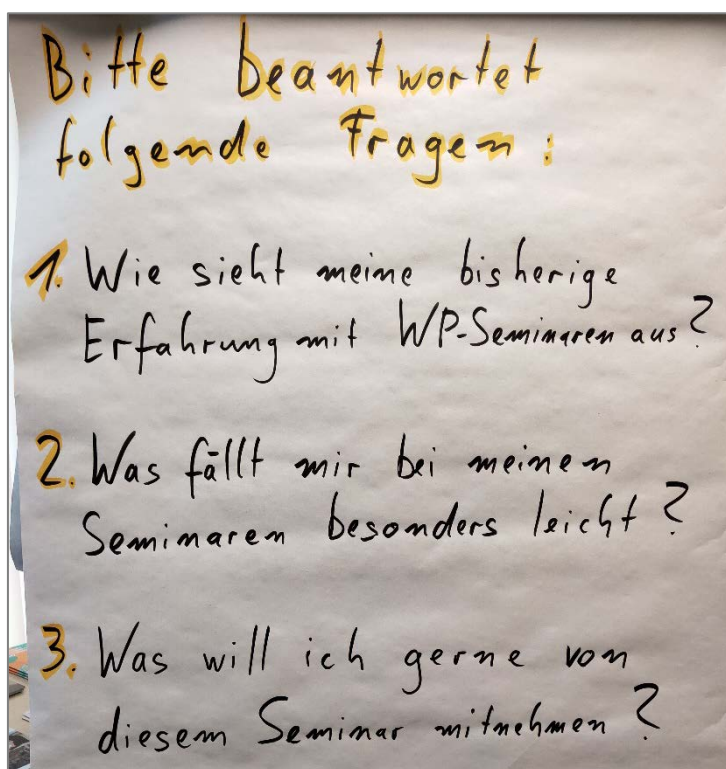 Bitte beantwortet
folgende Fragen:
1. Wie sieht meine bisherige
Erfahrung mit WP-Seminaren aus?
2. Was fällt mir bei meinen
Seminaren besonders leicht?
3. Was will ich gerne von
diesem Seminar mitnehmen?